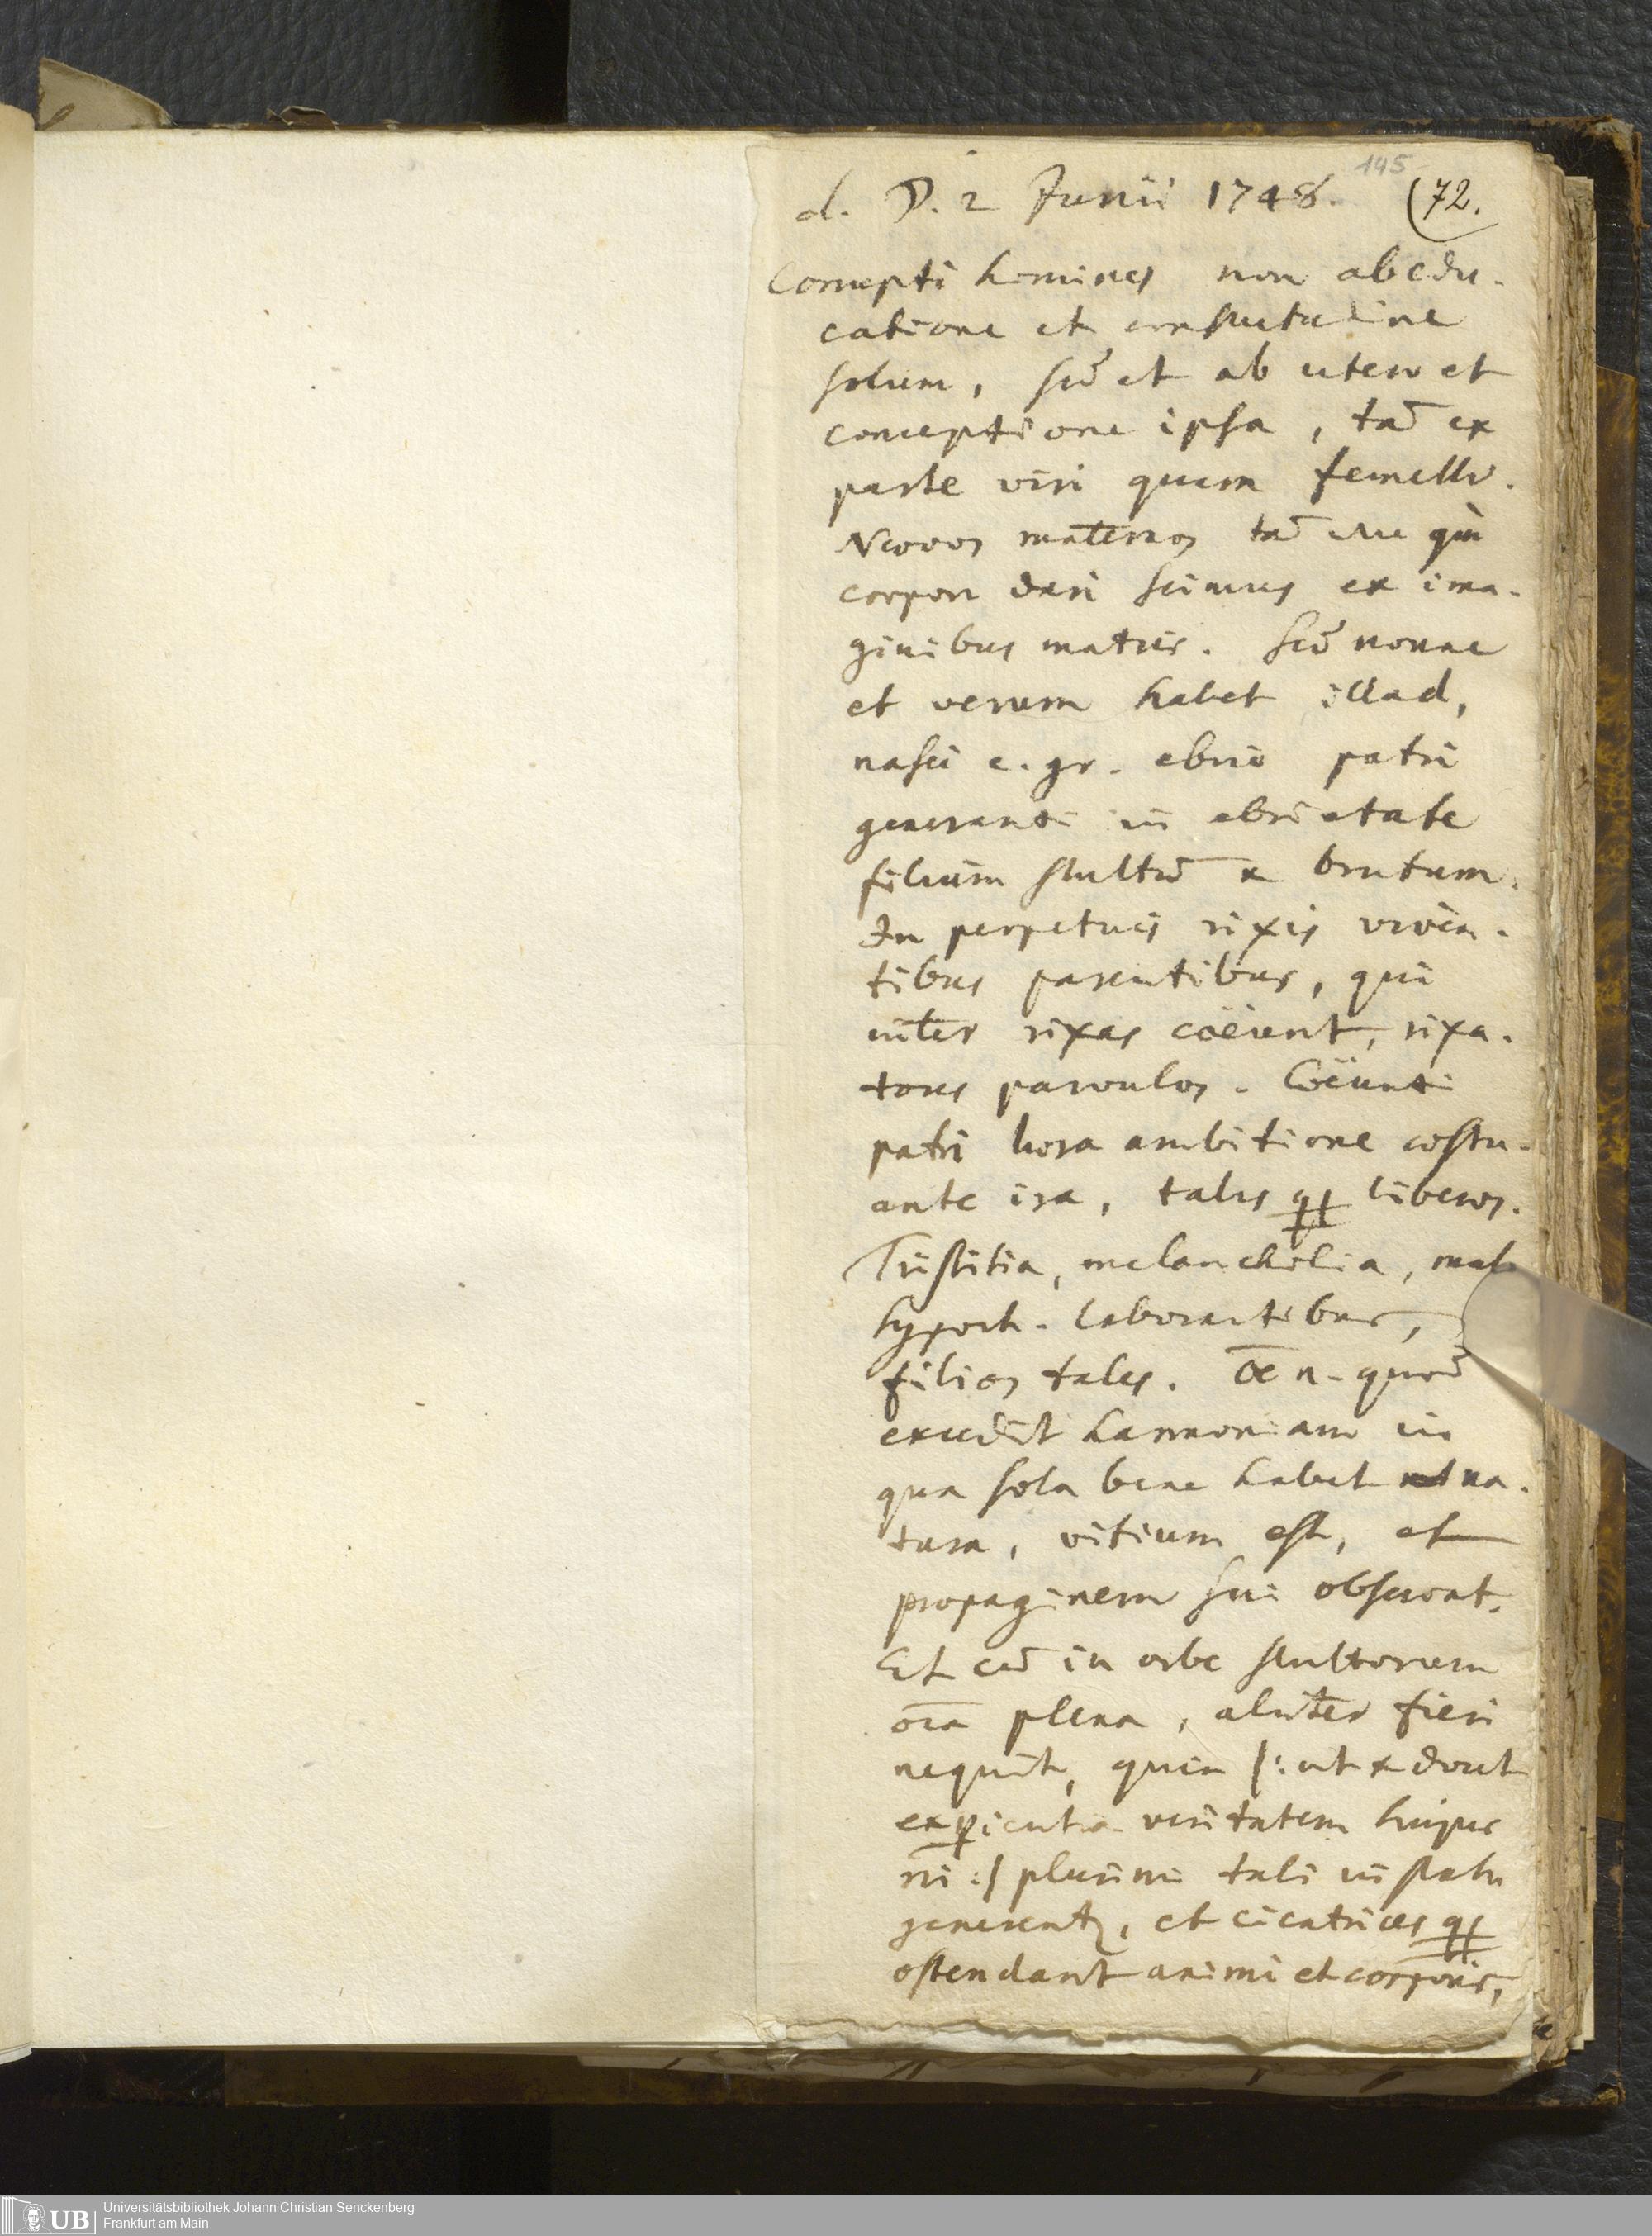 145
d. D. 2 Junii 1748. (72.
Corrupti homines non ab edu-
catione et consuetudine
solum, sed et ab utero et
conceptione ipsa, tam̄ ex
parte viri quam femellæ.
Nævos maternos tam̄ quin
corpori dari scimus ex ima-
ginibus matris. Sed nonne
et verum habet illud,
nasci e. gr. ebrio patri
generanti in ebrietate
filium stultum̄ & brutum.
In perpetuis rixis viven-
tibus parentibus, qui
inter rixas coëunt, rixa-
tores parvulos. Coëunti
patri hora ambitione æstu-
ante ira, tales qq liberos.
Tristitia, melancholia, malo
hypoch. laborantibus,
filios tales. Oē n. quod
excedit harmoniam in
qua sola bene habet na-
tura, vitium est, et
propaginem sui observat.
Et cum̄ in orbe stultorum
oīa plena, aliter fieri
nequit, quin |: ut & docet
experientia veritatem hujus
rei :| plurimi tali in statu
generentur, et cicatrices qq
ostendant animi et corporis,
UB Universitätsbibliothek Johann Christian Senckenberg
Frankfurt am Main